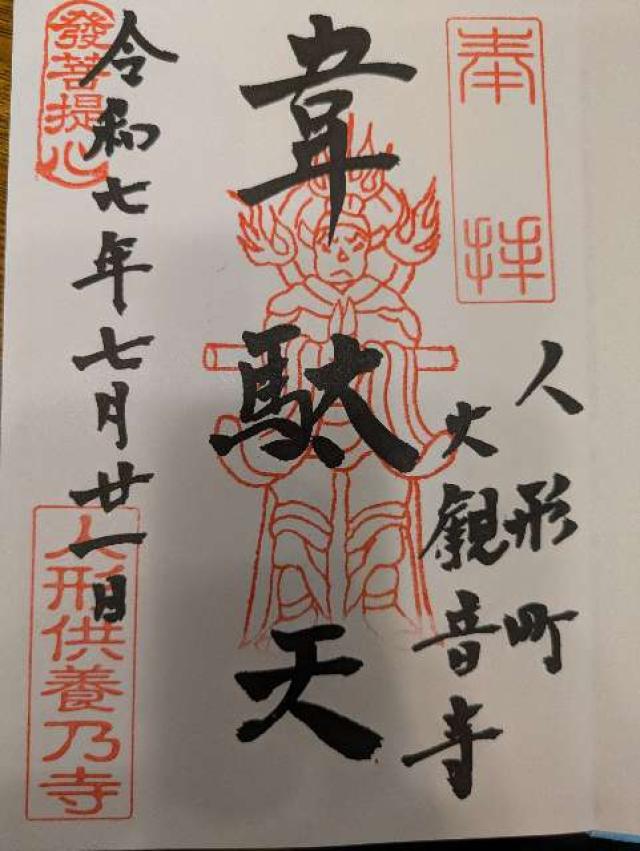 奉拝
人形町
大觀音寺
韋駄天
令和七年七月廿一日
發菩提心
人形供養乃寺